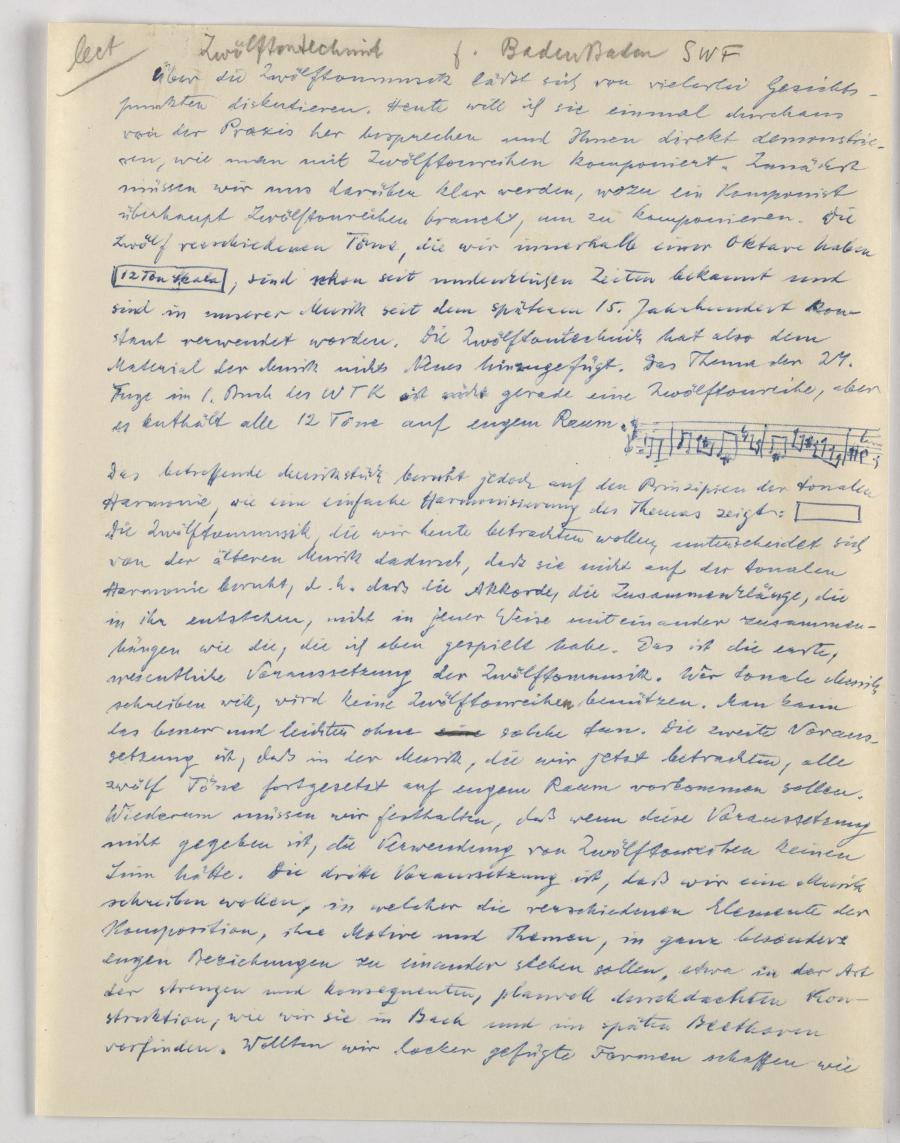 lect Zwölftontechnik f. Baden Baden SWF
Über die Zwölftonmusik läßt sich von vielerlei Gesichts-
punkten diskutieren. Heute will ich sie einmal durchaus
von der Praxis her besprechen und Ihnen direkt demonstrie-
ren, wie man mit Zwölftonreihen komponiert. Zunächst
müssen wir uns darüber klar werden, wozu ein Komponist
überhaupt Zwölftonreihen braucht, um zu komponieren. Die
zwölf verschiedenen Töne, die wir innerhalb einer Oktave haben
12 Ton Skala, sind schon seit undenklichen Zeiten bekannt und
sind in unserer Musik seit dem späteren 15. Jahrhundert kon-
stant verwendet worden. Die Zwölftontechnik hat also dem
Material der Musik nichts Neues hinzugefügt. Das Thema der 24.
Fuge im 1. Buch des WTK ist nicht gerade eine Zwölftonreihe, aber
es enthält alle 12 Töne auf engem Raum.
Das betreffende Musikstück beruht jedoch auf den Prinzipien der tonalen
Harmonie, wie eine einfache Harmonisierung des Themas zeigt:
Die Zwölftonmusik, die wir heute betrachten wollen, unterscheidet sich
von der älteren Musik dadurch, daß sie nicht auf der tonalen
Harmonie beruht, d.h. daß die Akkorde, die Zusammenklänge, die
in ihr entstehen, nicht in jener Weise miteinander zusammen-
hängen wie die, die ich eben gespielt habe. Das ist die erste,
wesentliche Voraussetzung der Zwölftonmusik. Wer tonale Musik
schreiben will, wird keine Zwölftonreihen benützen. Man kann
das besser und leichter ohne solche tun. Die zweite Voraus-
setzung ist, daß in der Musik, die wir jetzt betrachten, alle
zwölf Töne fortgesetzt auf engem Raum vorkommen sollen.
Wiederum müssen wir festhalten, daß wenn diese Voraussetzung
nicht gegeben ist, die Verwendung von Zwölftonreihen keinen
Sinn hätte. Die dritte Voraussetzung ist, daß wir eine Musik
schreiben wollen, in welcher die verschiedenen Elemente der
Komposition, ihre Motive und Themen, in ganz besonders
engen Beziehungen zu einander stehen sollen, etwa in der Art
der strengen und konsequenten, planvoll durchdachten Kon-
struktion, wie wir sie in Bach und im späten Beethoven
vorfinden. Wollten wir locker gefügte Formen schaffen wie